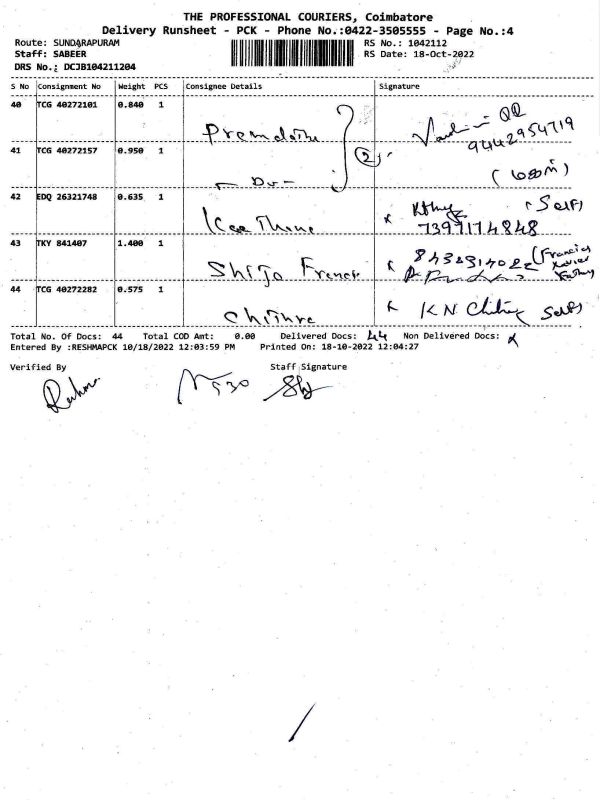 THE PROFESSIONAL COURIERS, Coimbatore
Delivery Runsheet - PCK - Phone No.:0422-3505555 - Page No.:4
Route: SUNDARAPURAM RS No.: 1042112
Staff: SABEER RS Date: 18-Oct-2022
DRS No.: DCJB104211204
S No Consignment No Weight PCS Consignee Details Signature
40 TCG 40272101 0.840 1
9442954719
41 TCG 40272157 0.950 1 - Do - 2
42 EDQ 26321748 0.635 1 (Self)
7397174848
43 TKY 841407 1.400 1 Shijo Francis (Francis Xavier
44 TCG 40272282 0.575 1 Chithra K N Self)
Total No. Of Docs: 44 Total COD Amt: 0.00 Delivered Docs: 44 Non Delivered Docs:
Entered By :RESHMAPCK 10/18/2022 12:03:59 PM Printed On: 18-10-2022 12:04:27
Verified By Staff Signature